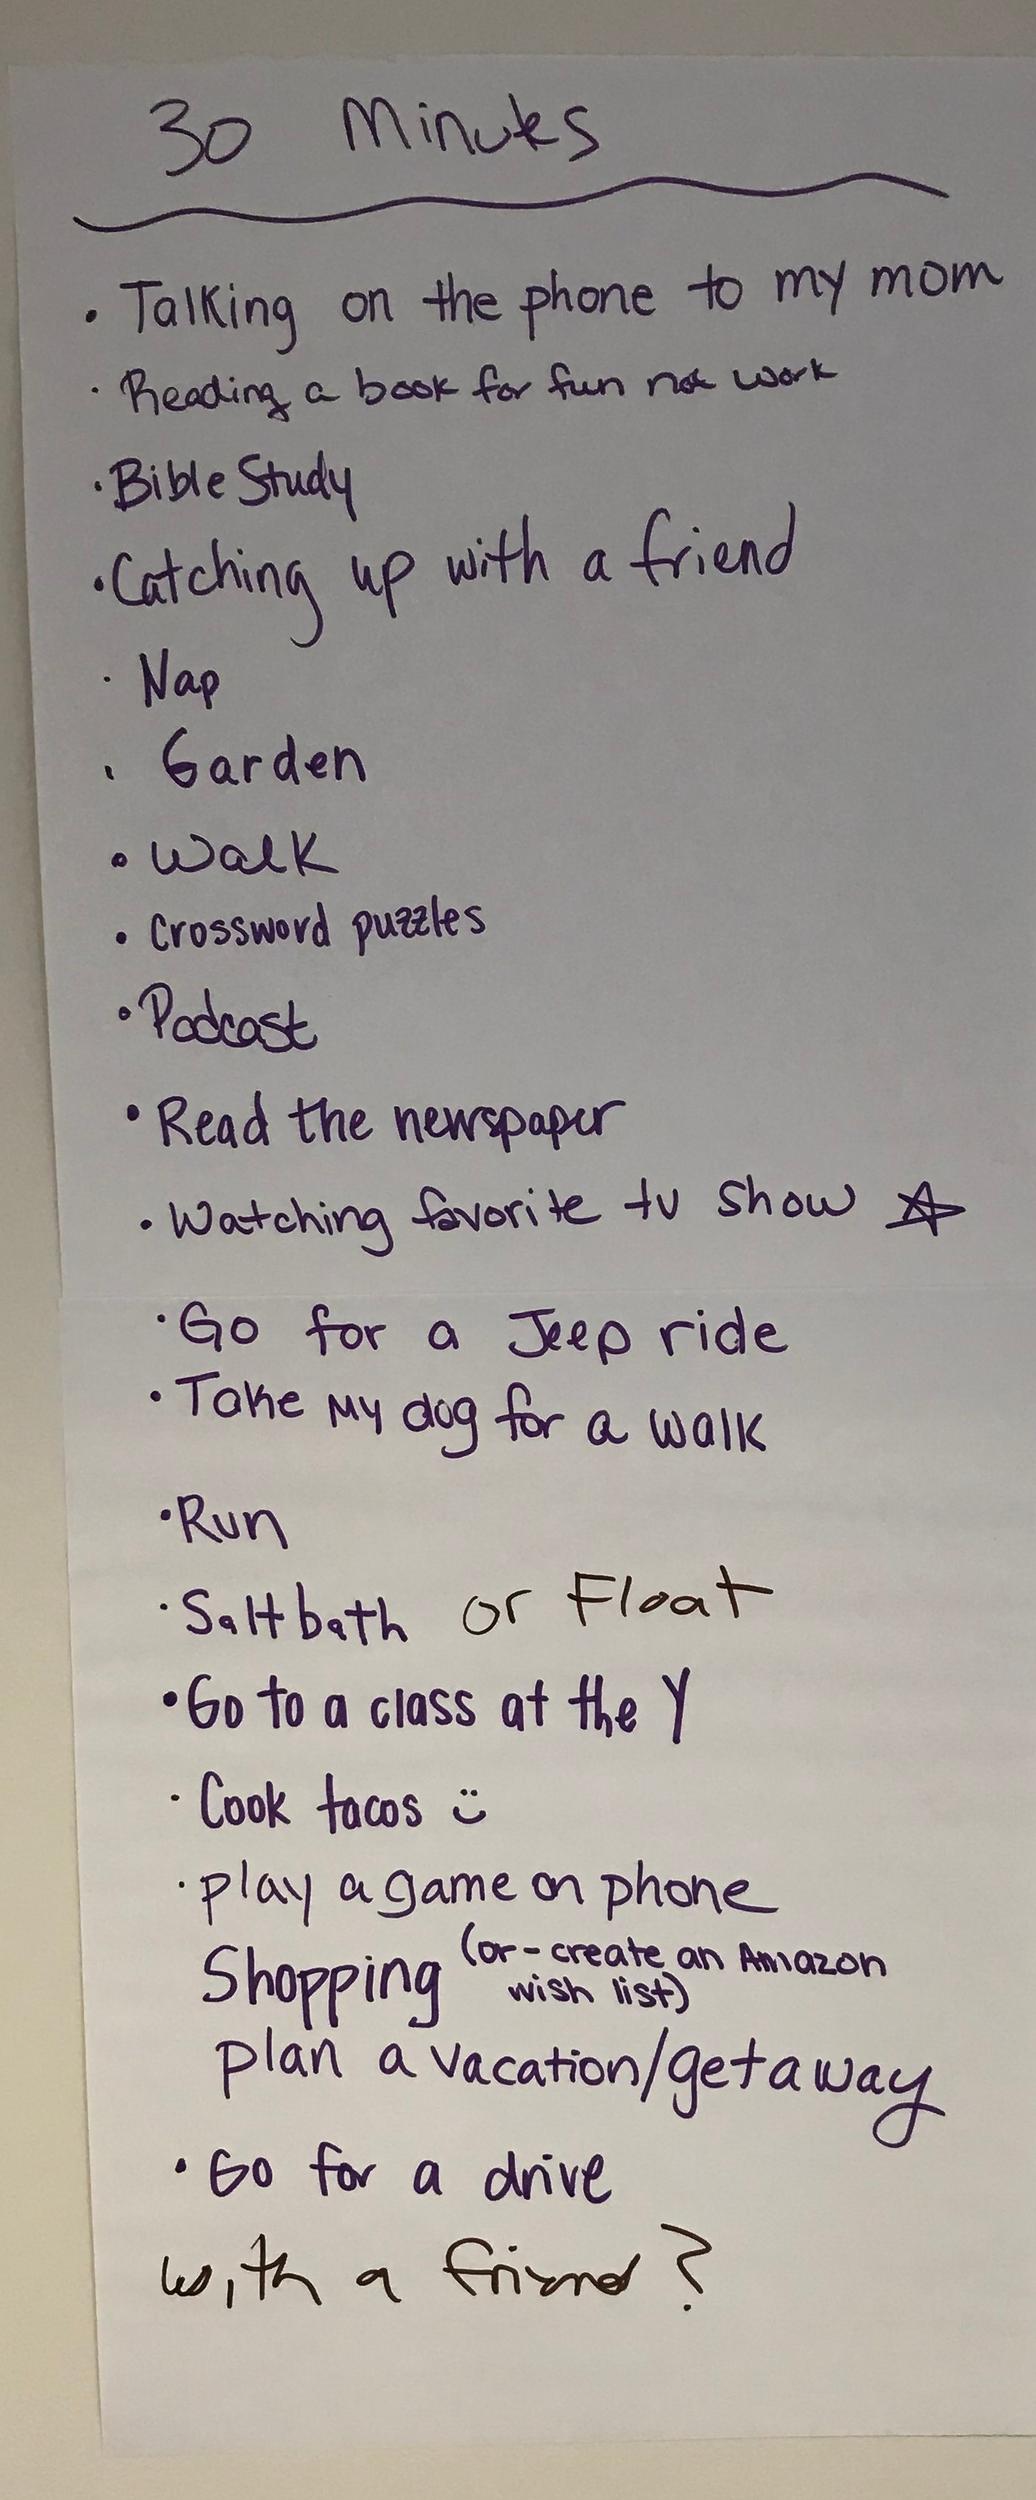 30 Minutes
• Talking on the phone to my mom
• Reading a book for fun not work
• Bible Study
• Catching up with a friend
• Nap
• Garden
• Walk
• Crossword puzzles
• Podcast
• Read the newspaper
• Watching favorite tv show ☆
• Go for a Jeep ride
• Take My dog for a walk
• Run
• Salt bath or Float
• Go to a class at the Y
• Cook tacos ü
• play a game on phone
Shopping (or - create an Amazon
wish list)
plan a vacation/getaway
• Go for a drive
with a friend?